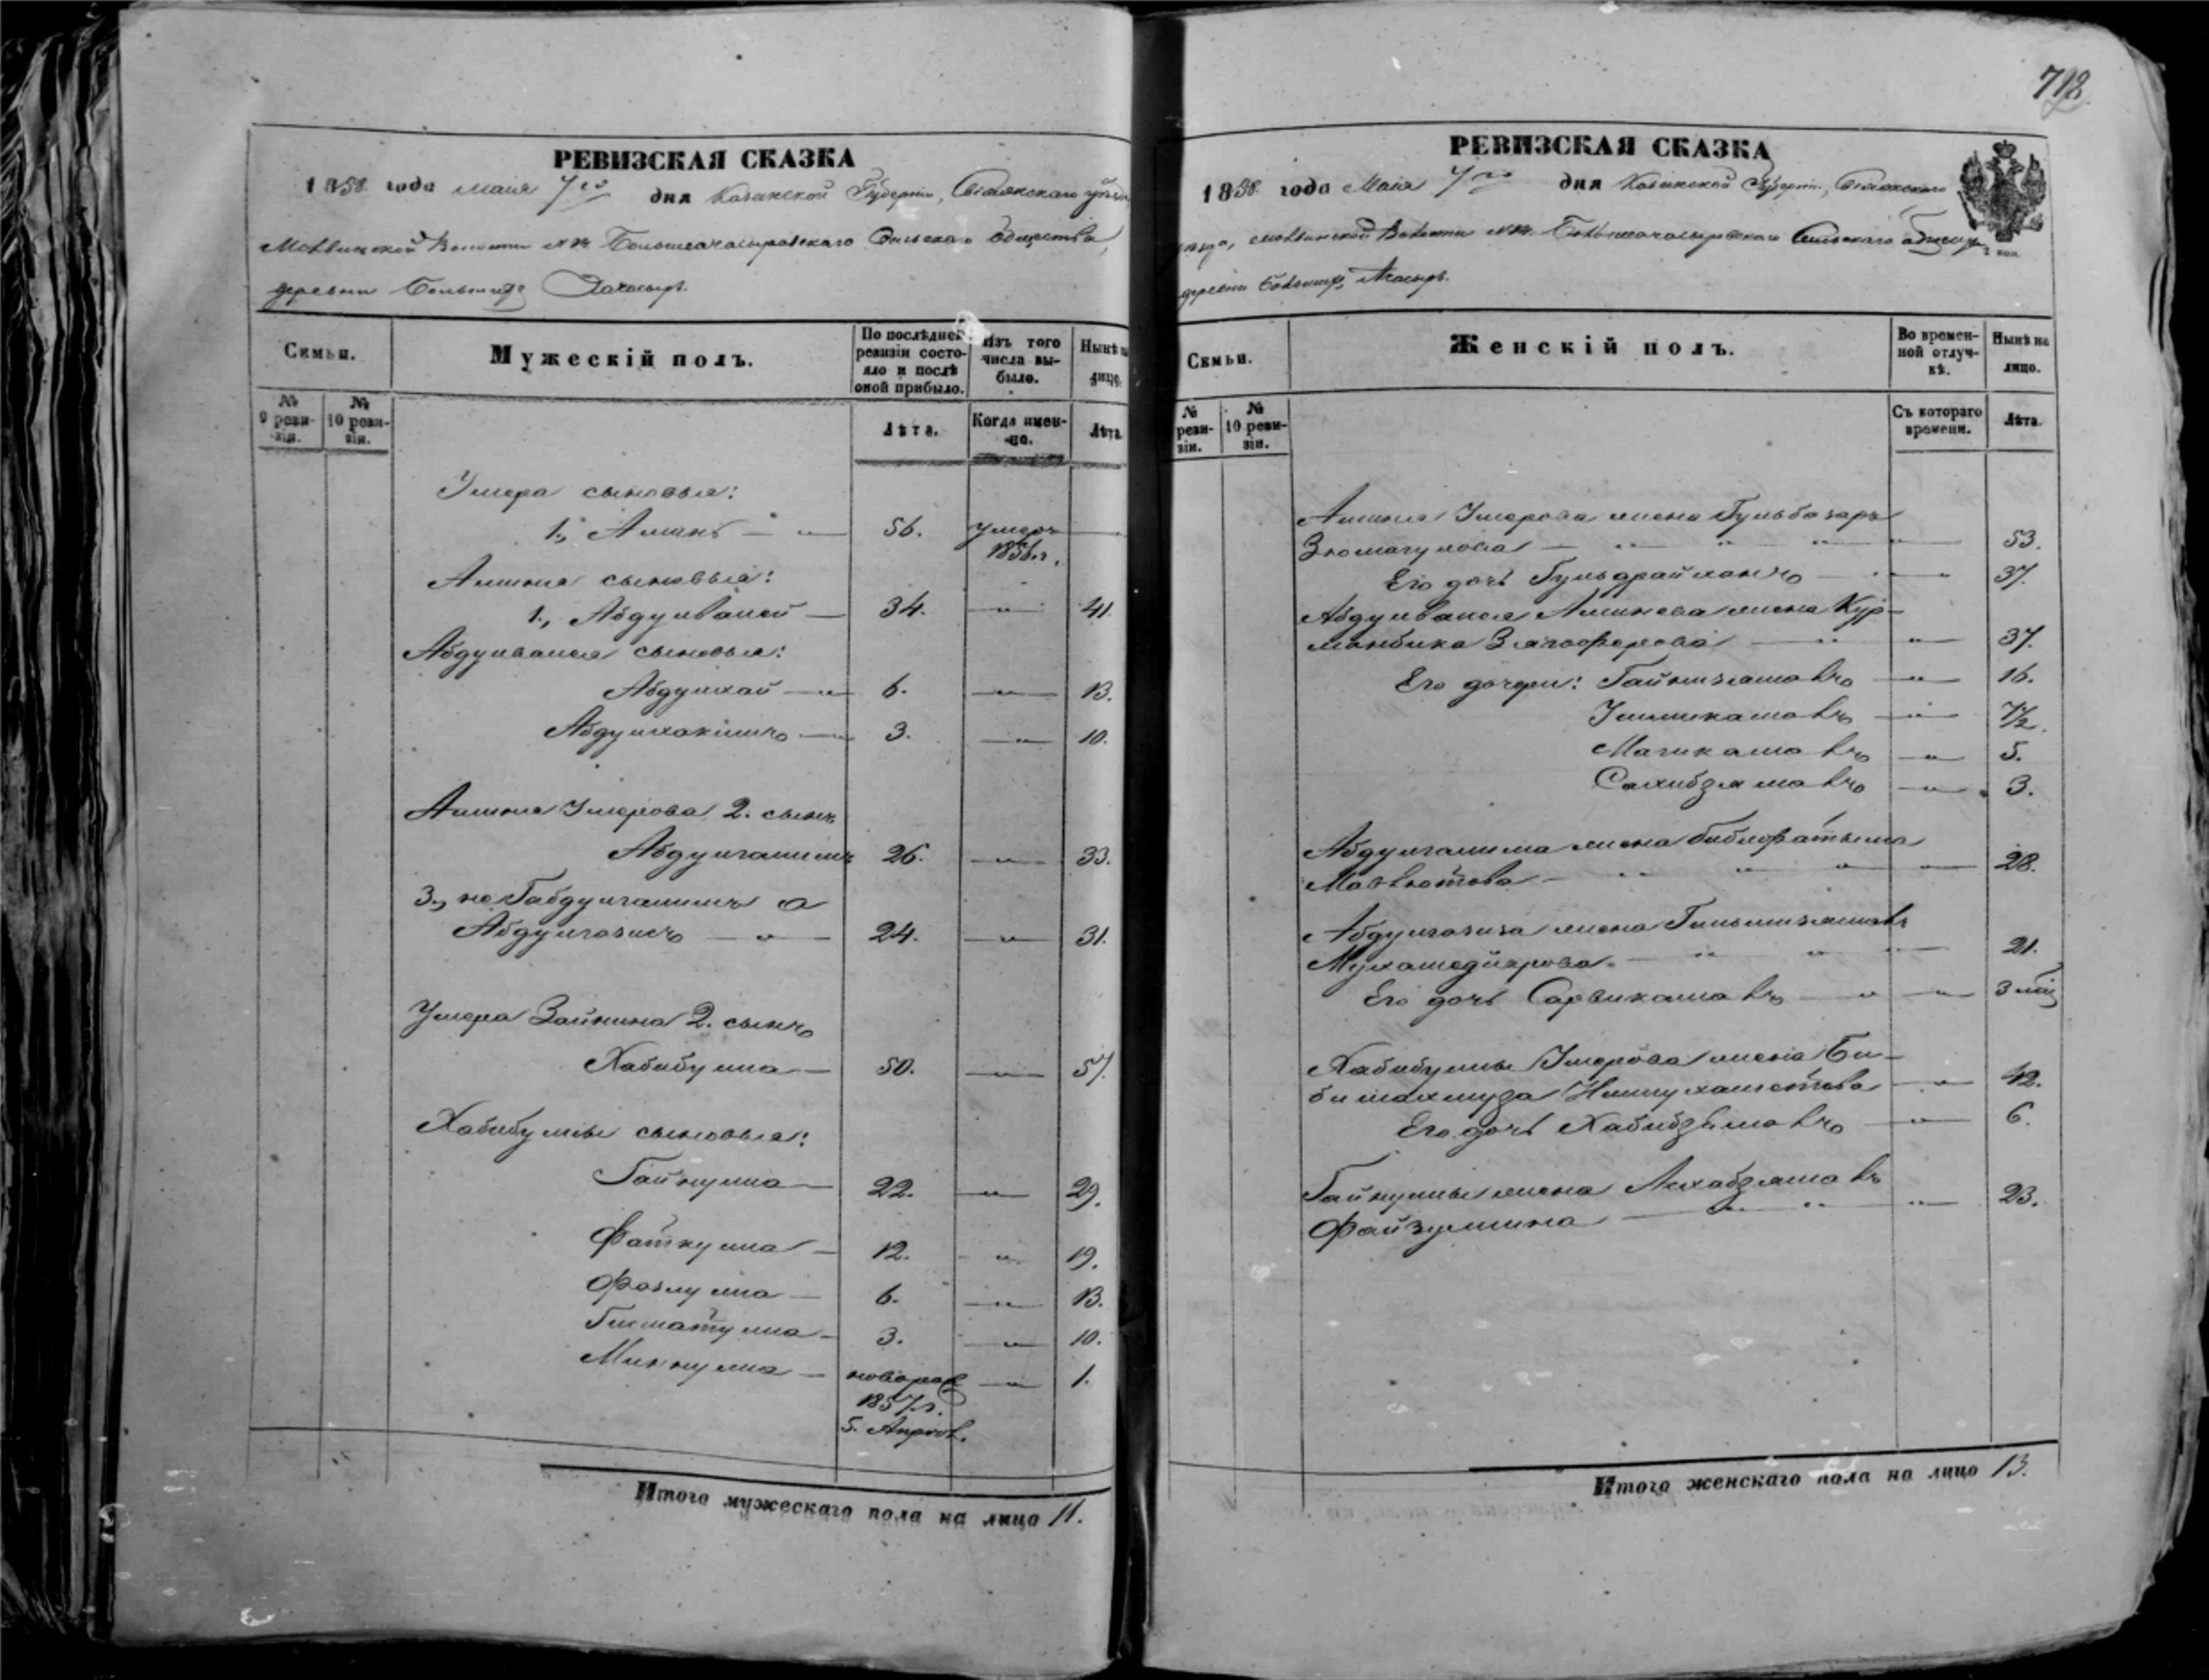 712
РЕВИЗСКАЯ СКАЗКА
1858 года маия 7го дня Казанской Губернии, Свіяжскаго уѣзда
Молвинской Волости Большеачасырскаго Сельскаго общества,
деревни Большихъ Ачасыръ.
Семьи.
Мужескій полъ.
По послѣдней ревизіи состояло и послѣ оной прибыло.
Изъ того числа выбыло.
Нынѣ на лицо.
№ 9 ревизіи.
№ 10 ревизіи.
Лѣта.
Когда именно.
Лѣта.
Умера сыновья:
1., Аминъ — 56. умеръ 1856 г.
Амина сыновья:
1., Абдулвалей — 34. — 41.
Абдулвалея сыновья:
Абдулхай — 6. — 13.
Абдулхакимъ — 3. — 10.
Амина Умерова 2. сынъ
Абдулгалимъ 26. — 33.
3., не Габдулгалимъ а
Абдулгазисъ — 24. — 31.
Умера Зайнина 2. сынъ
Хабибулла — 50. — 57.
Хабибуллы сыновья:
Гайнулла — 22. — 29.
Фаткулла — 12. — 19.
Фазлулла — 6. — 13.
Гисматулла — 3. — 10.
Миннулла — новорож — 1.
1857 г.
5. Апрѣл.
Итого мужескаго пола на лицо 11.
РЕВИЗСКАЯ СКАЗКА
1858 года Маія 7го дня Казанской Губерніи, Свіяжскаго
уѣзда, Молвинской Волости Большеачасырскаго Сельскаго общества
деревни Большихъ Ачасыръ.
Семьи.
Женскій полъ.
Во временной отлучкѣ.
Нынѣ на лицо.
№ ревизіи.
№ 10 ревизіи.
Съ котораго времени.
Лѣта.
Амина Умерова жена Гульбазаръ
Зюмагулова — 53.
Его дочь Гульдрайханъ — 37.
Абдулвалея Аминева жена Кур-
манбика Зягоферова — 37.
Его дочери: Гайнизямалъ — 16.
Уммикамалъ — 7½.
Магикамалъ — 5.
Сахибзямалъ — 3.
Абдулгалима жена Бибифатыма
Мавлютова — 28.
Абдулгазиза жена Гильмизямалъ
Мухамедіярова — 21.
Его дочь Сарвикамалъ — 3 мѣс
Хабибуллы Умерова жена Би-
бимахмуза Нимухаметова — 42.
Его дочь Хабибзямалъ — 6.
Гайнуллы жена Михабзямалъ
Файзуллина — 23.
Итого женскаго пола на лицо 13.